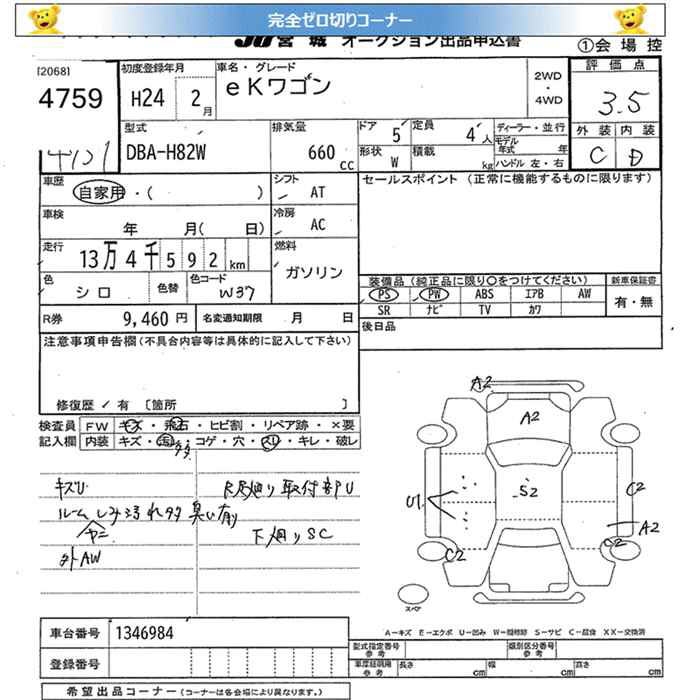 完全ゼロ切りコーナー
JU宮城 オークション出品申込書
①会場控
[2068]
4759
初度登録年月
H24 2月
車名・グレード
eKワゴン
2WD・4WD
評価点
3.5
外装 内装
C D
型式
DBA-H82W
排気量
660 cc
ドア 5
定員 4人
形状 W
積載 kg
ディーラー・並行
モデル年式 年
ハンドル 左・右
車歴 自家用・( )
シフト AT
セールスポイント (正常に機能するものに限ります)
車検 年 月( 日)
冷房 AC
走行 13万4千592km
燃料 ガソリン
色 シロ 色替
色コード W37
装備品(純正品に限り○をつけてください)
PS PW ABS エアB AW
SR ナビ TV カワ
新車保証書
有・無
R券 9,460円
名変通知期限 月 日
後日品
注意事項申告欄(不具合内容等は具体的に記入して下さい)
修復歴 / 有 〔箇所 〕
検査員 FW キズ・飛石・ヒビ割・リペア跡・×要
記入欄 内装 キズ・汚・コゲ・穴・スレ・キレ・破レ
キズU
ルームしみ汚れタタ臭い有
ヤニ
外AW
取付部U
下廻りSC
A2
A2
S2
U1
C2
A2
C2
C2
スペア
A−キズ E−エクボ U−凹み W−補修跡 S−サビ C−腐食 XX−交換済
車台番号 1346984
登録番号
型式指定番号 参考
類別区分番号 参考
車庫証明用 参考 長さ cm 幅 cm 高さ cm
希望出品コーナー(コーナーは各会場により異なります。)